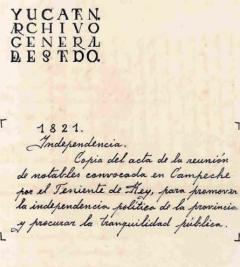 YUCATAN.
ARCHIVO
GENERAL
DE ESTDO.
1821.
Independencia.
Copia del acta de la reunión
de notables convocada en Campeche
por el Teniente de Rey, para promover
la independencia política de la provincia
y procurar la tranquilidad pública.